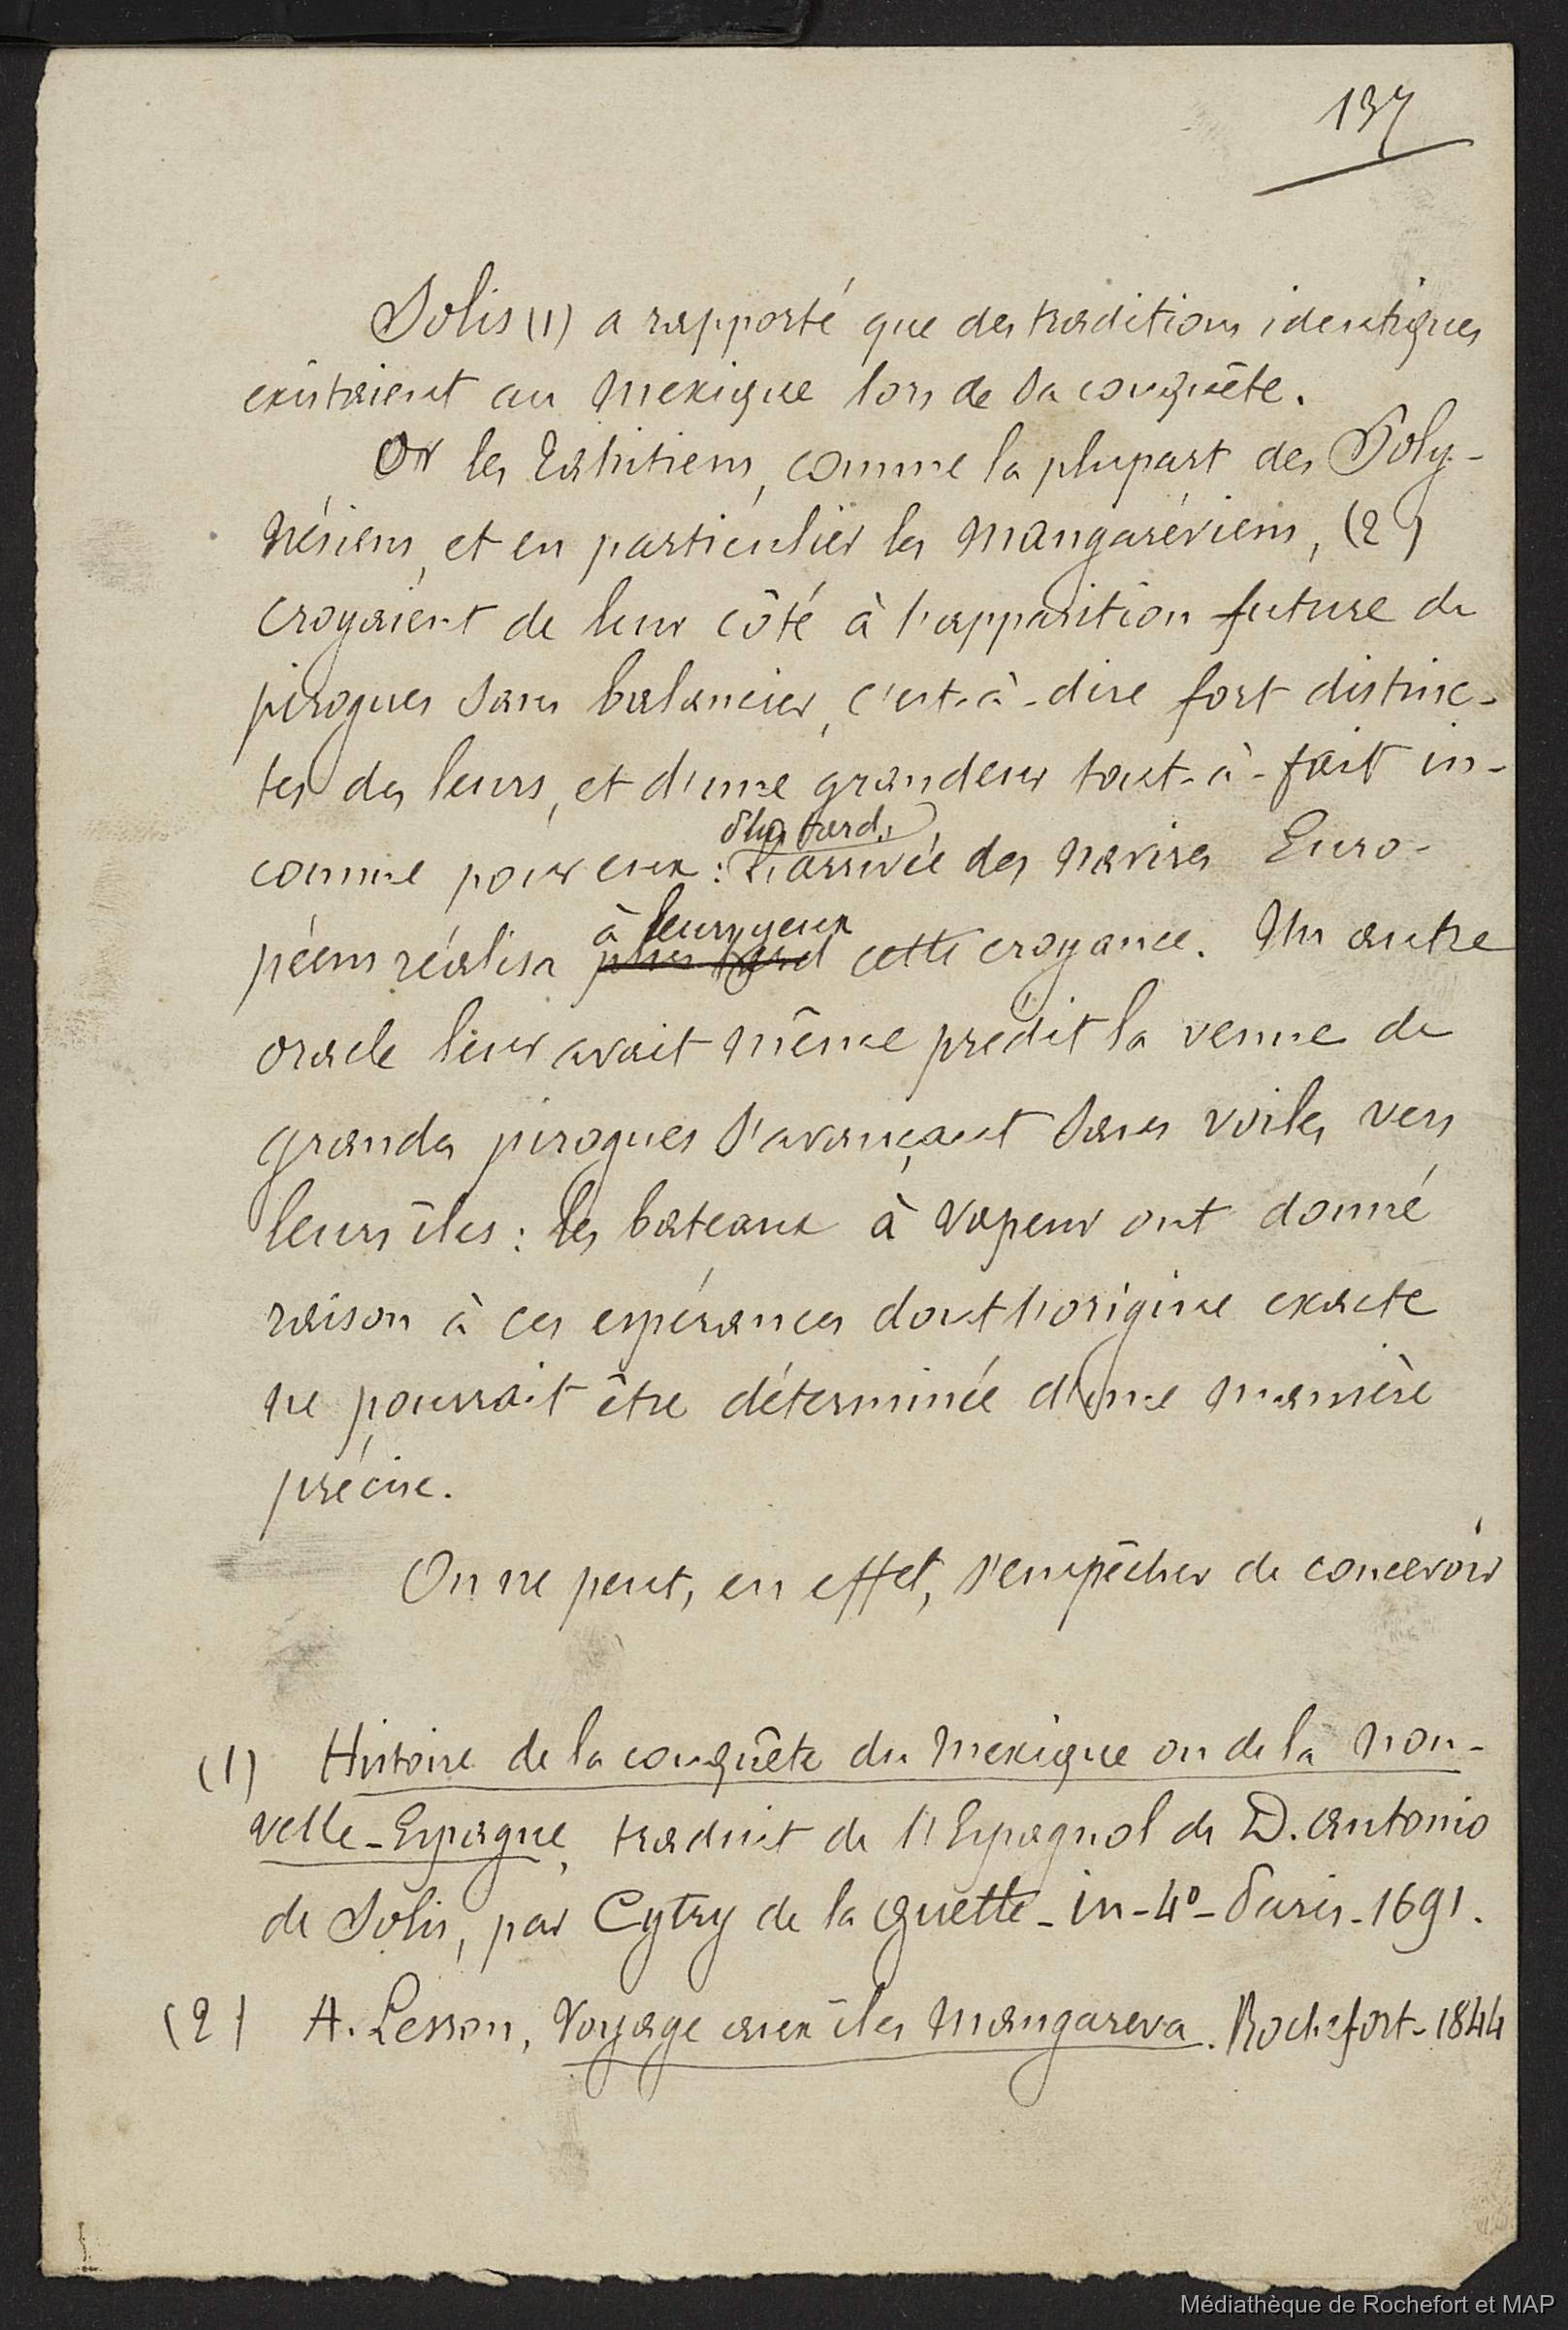 137
Solis (1) a rapporté que des traditions identiques
existaient au Mexique lors de sa conquête.
Or les Tahitiens, comme la plupart des Poly-
nésiens, et en particulier les Mangaréviens, (2)
croyaient de leur côté à l'apparition future de
pirogues sans balancier, c'est-à-dire fort distinc-
tes des leurs, et d'une grandeur tout-à-fait in-
Plus tard,
connue pour eux : l'arrivée des navires Euro-
à leurs yeux
péens réalisa plus tard cette croyance. Un autre
oracle leur avait même prédit la venue de
grandes pirogues s'avançant sans voiles vers
leurs îles : les bateaux à vapeur ont donné
raison à ces espérances dont l'origine exacte
ne pourrait être déterminée d'une manière
précise.
On ne peut, en effet, s'empêcher de concevoir
(1) Histoire de la conquête du Mexique ou de la Nou-
velle-Espagne, traduit de l'Espagnol de D. Antonio
de Solis, par Cytry de la Guette - in-4º - Paris - 1691.
(2) A. Lesson, Voyage aux îles Mangareva. Rochefort - 1844
Médiathèque de Rochefort et MAP